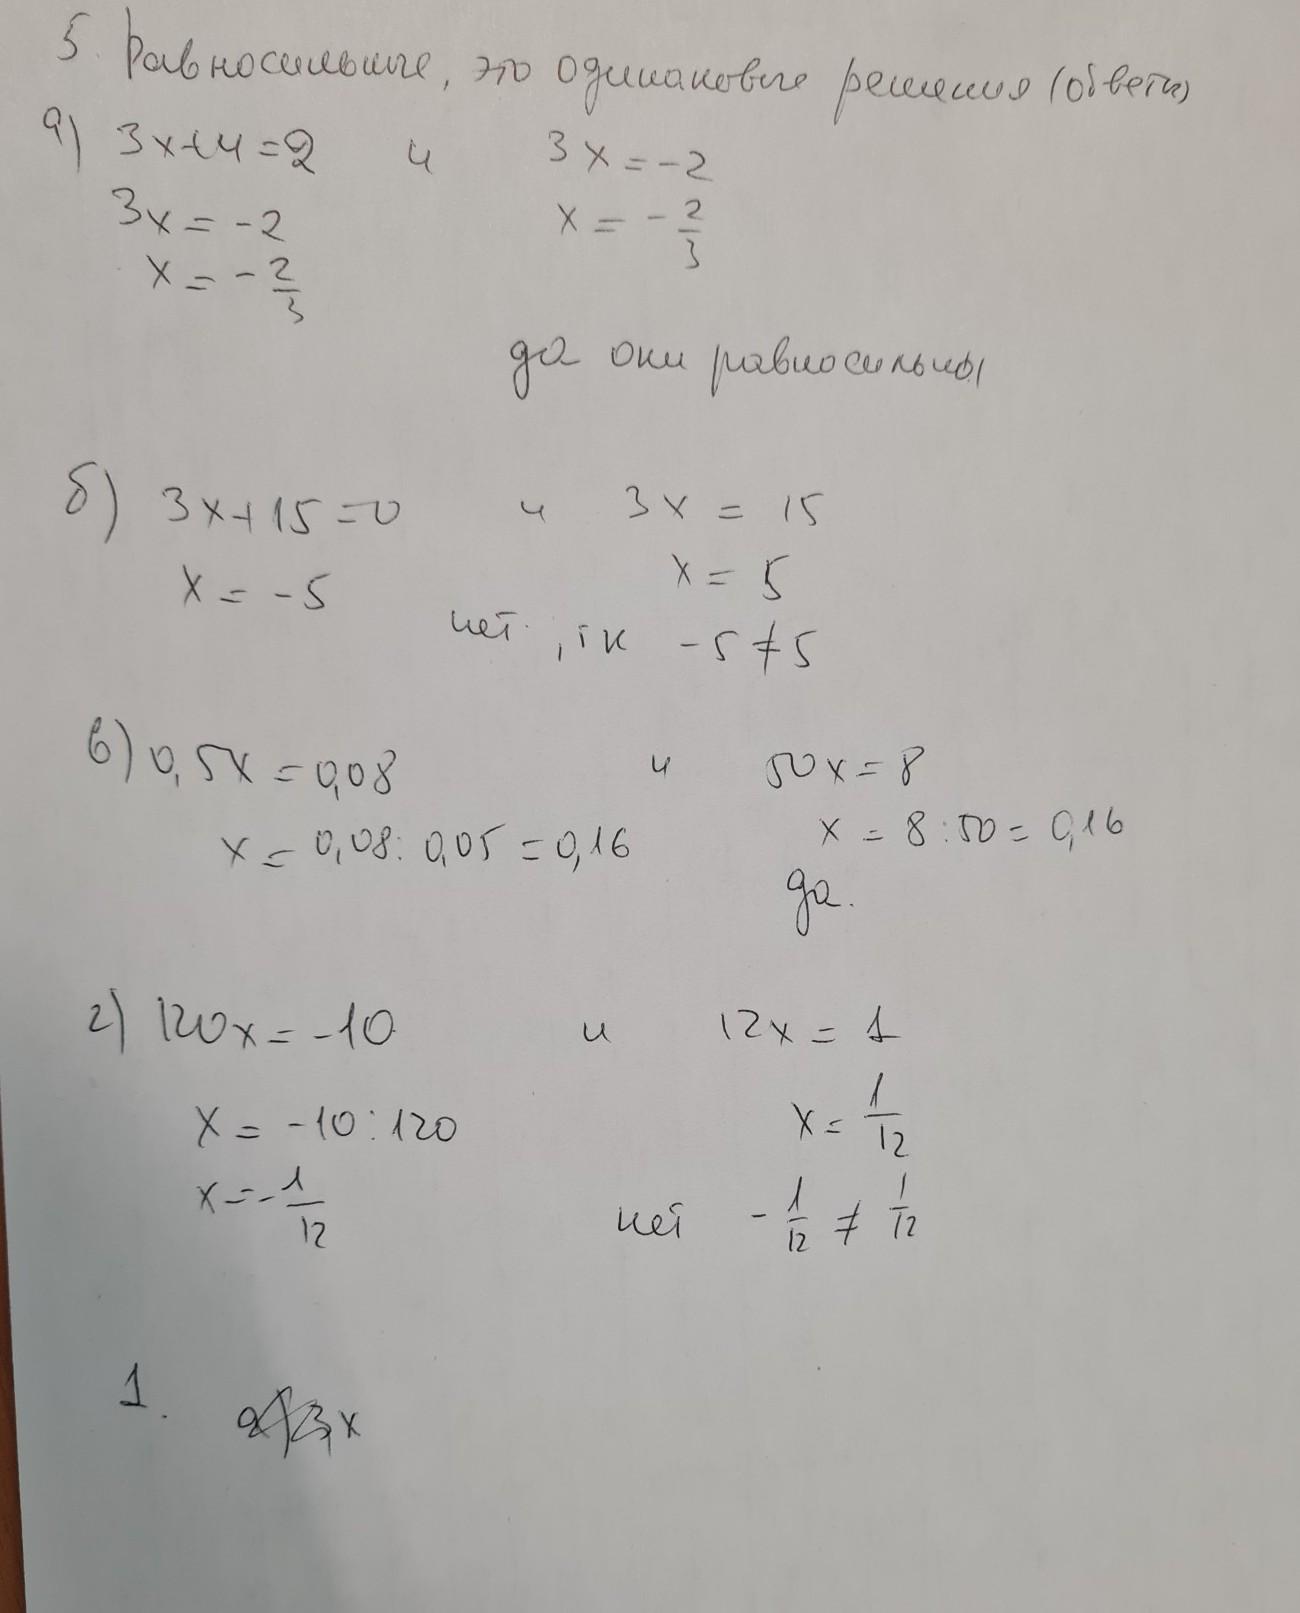 5. Равносильные, это одинаковые решения (ответы)
а) 3x+4=2 и 3x=-2
3x=-2 x=-2/3
x=-2/3
да они равносильны
б) 3x+15=0 и 3x=15
x=-5 x=5
нет, тк -5≠5
в) 0,5x=0,08 и 50x=8
x=0,08:0,05=0,16 x=8:50=0,16
да.
г) 120x=-10 и 12x=1
x=-10:120 x=1/12
x=-1/12 нет -1/12≠1/12
1.